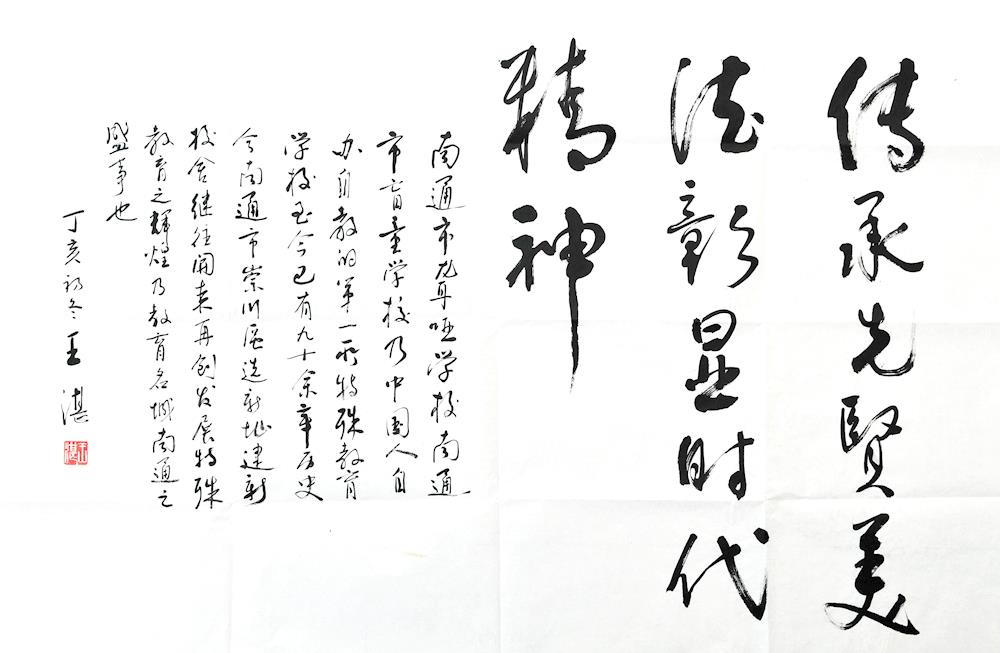 传承先贤美
德彰显时代
精神
南通市聋哑学校南通
市盲童学校乃中国人自
办自教的第一所特殊教育
学校至今已有九十余年历史
今南通市崇川区选新址建新
校舍继往開来再创发展特殊
教育之輝煌乃教育名城南通之
盛事也
丁亥初冬王湛
王湛